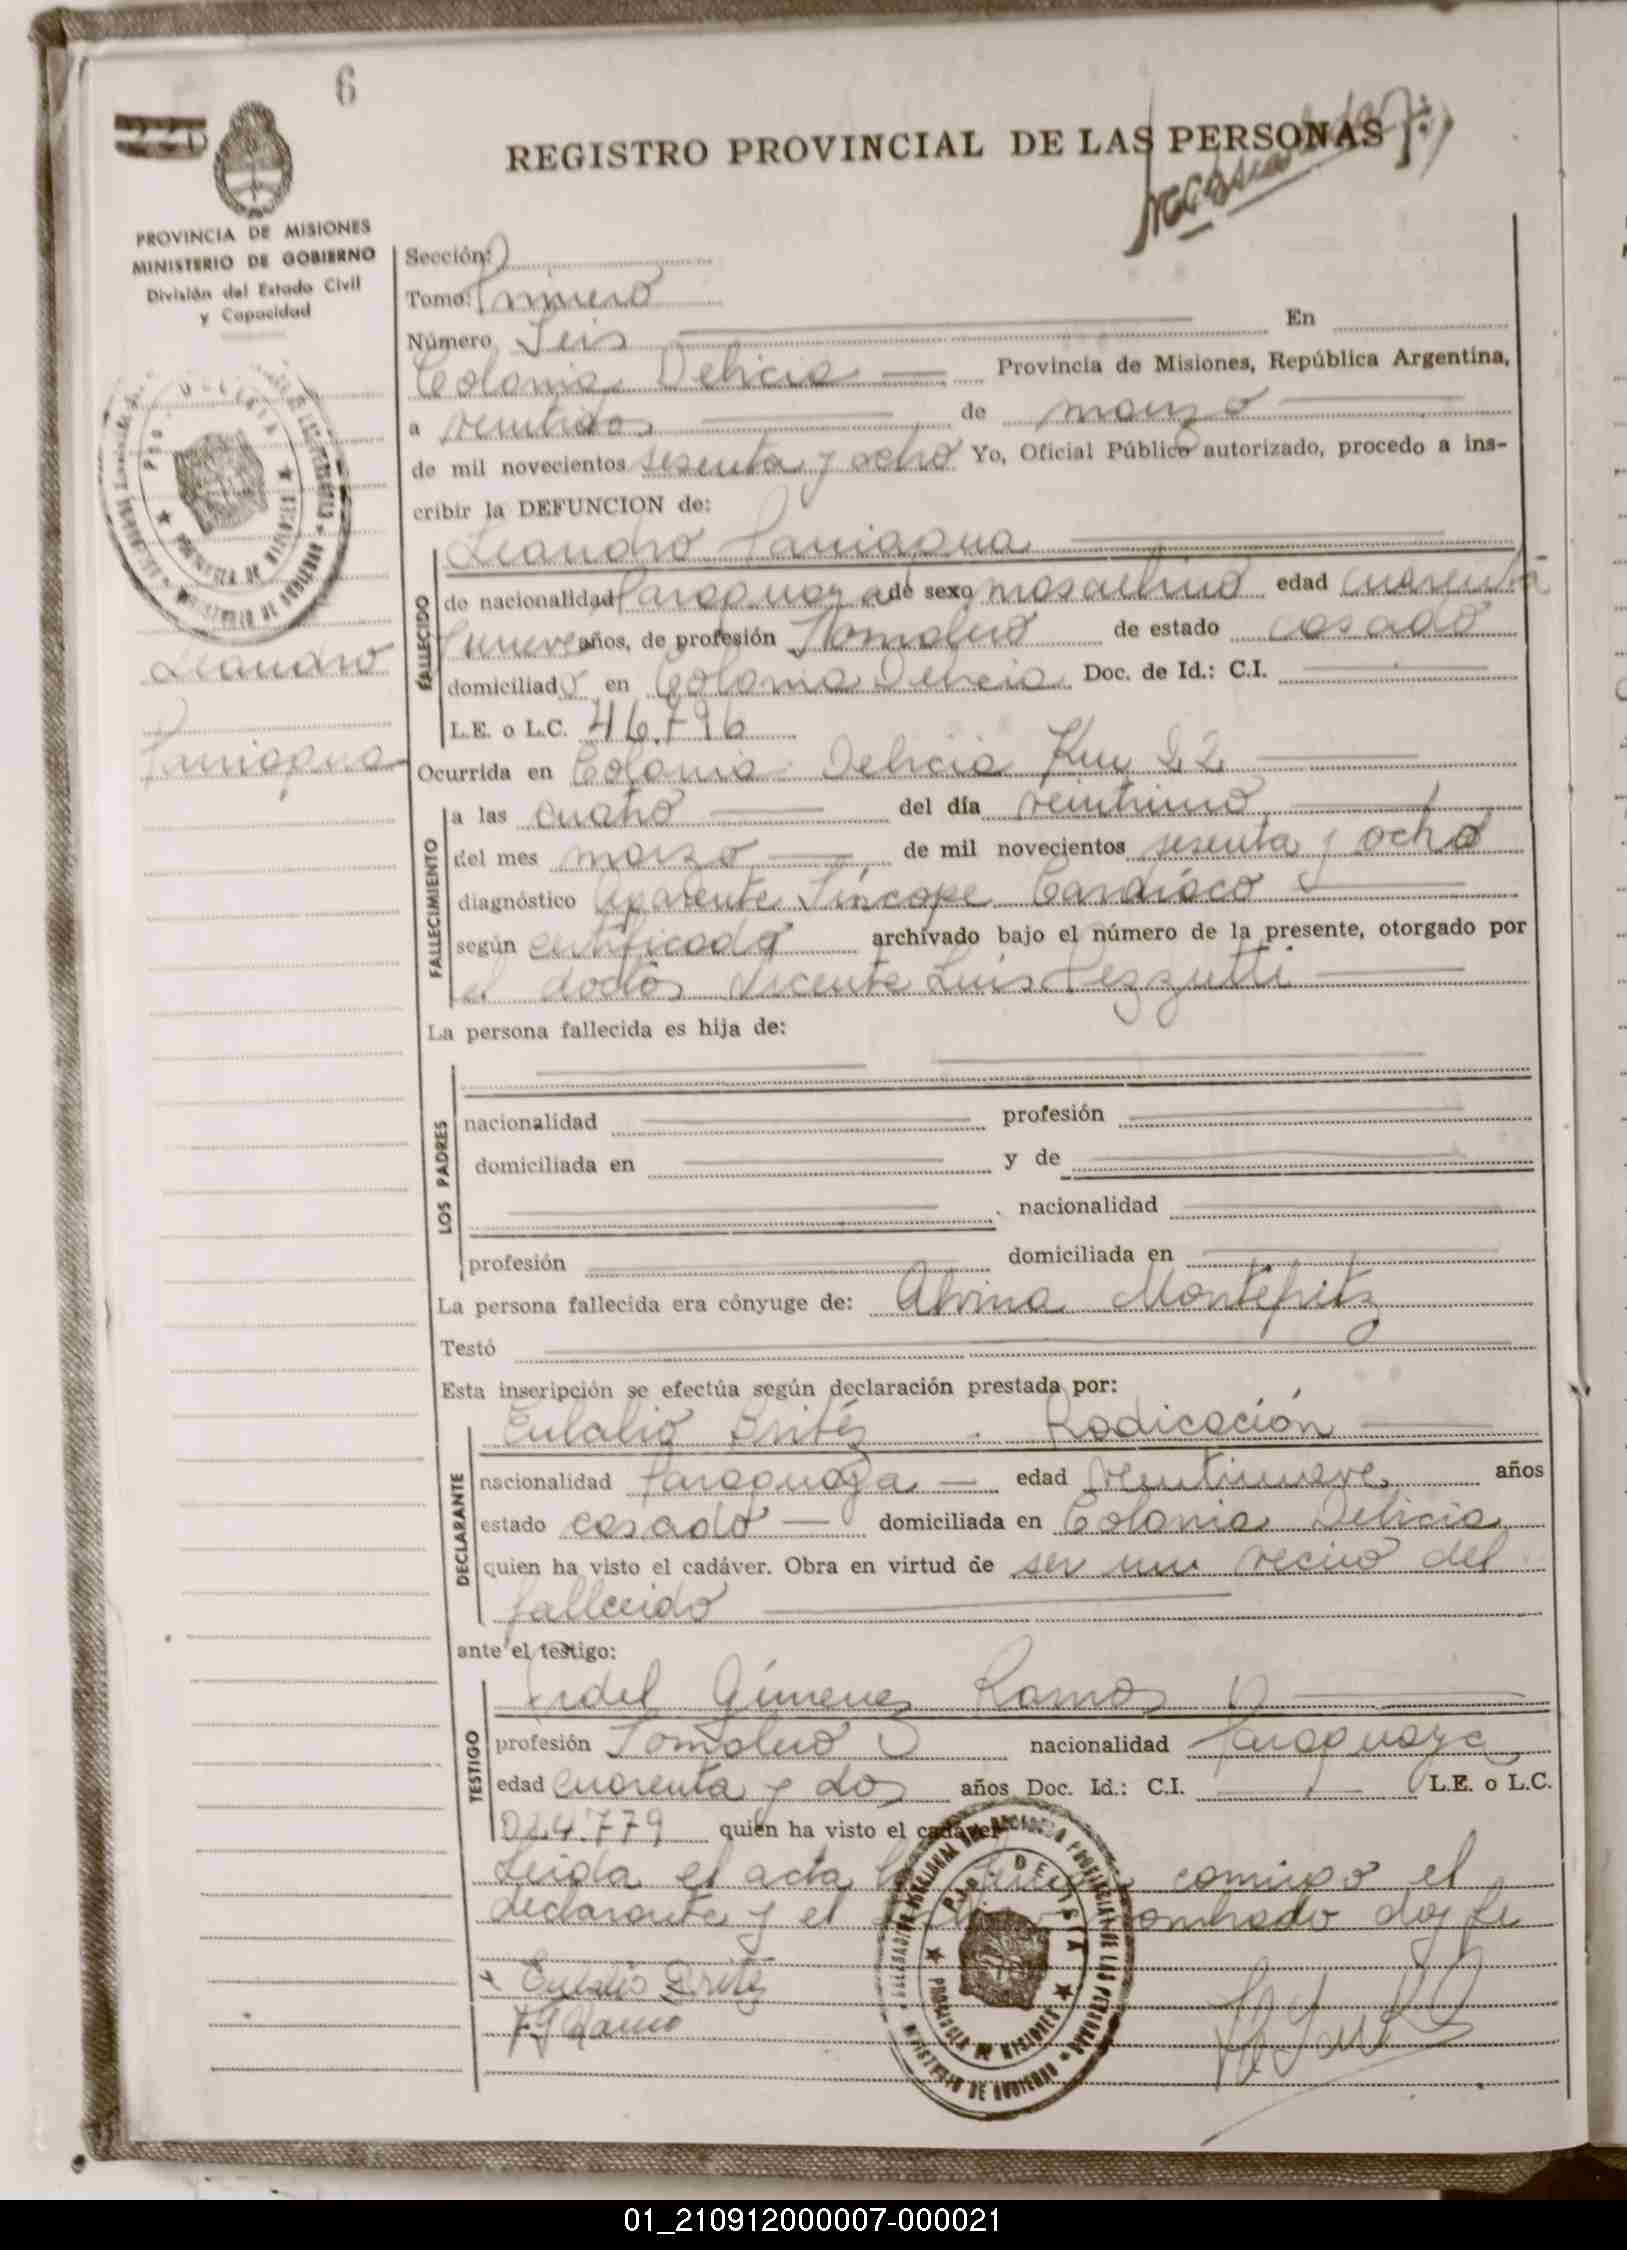 6
REGISTRO PROVINCIAL DE LAS PERSONAS
PROVINCIA DE MISIONES
MINISTERIO DE GOBIERNO
División del Estado Civil
y Capacidad
Sección:
Tomo: Primero
Número Seis En
Colonia Delicia Provincia de Misiones, República Argentina,
a veintidos de marzo
de mil novecientos sesenta y ocho Yo, Oficial Público autorizado, procedo a ins-
cribir la DEFUNCION de:
Leandro Paniagua
Leandro
Paniagua
FALLECIDO
de nacionalidad Paraguaya de sexo masculino edad cuarenta
y nueve años, de profesión Jornalero de estado casado
domiciliado en Colonia Delicia Doc. de Id.: C.I.
L.E. o L.C. 46.796
Ocurrida en Colonia Delicia Km 22
FALLECIMIENTO
a las cuatro del día veintiuno
del mes marzo de mil novecientos sesenta y ocho
diagnóstico Aparente Síncope Cardíaco
según certificado archivado bajo el número de la presente, otorgado por
el doctor Vicente Luis Pezzutti
La persona fallecida es hija de:
LOS PADRES
nacionalidad profesión
domiciliada en y de
nacionalidad
profesión domiciliada en
La persona fallecida era cónyuge de: Alvina
Testó
Esta inscripción se efectúa según declaración prestada por:
DECLARANTE
Eulalio Britéz Radicación
nacionalidad Paraguaya edad veintinueve años
estado casado domiciliada en Colonia Delicia
quien ha visto el cadáver. Obra en virtud de ser un vecino del
fallecido
ante el testigo:
TESTIGO
Fidel Gimenez Ramos
profesión Jornalero nacionalidad Paraguaya
edad cuarenta y dos años Doc. Id.: C.I. L.E. o L.C.
024.779 quien ha visto el cadáver
Leida el acta la conmigo el
declarante y el nombrado doy fe
Eulalio Britz
F G Ramo
PROVINCIA DE MISIONES
MINISTERIO DE GOBIERNO
01_210912000007-000021